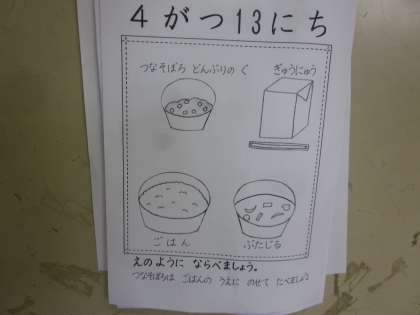 4がつ13にち
つなそぼろ どんぶりの ぐ
ぎゅうにゅう
ごはん
ぶたじる
えのように ならべましょう。
つなそぼろは ごはんの うえに のせて たべましょう